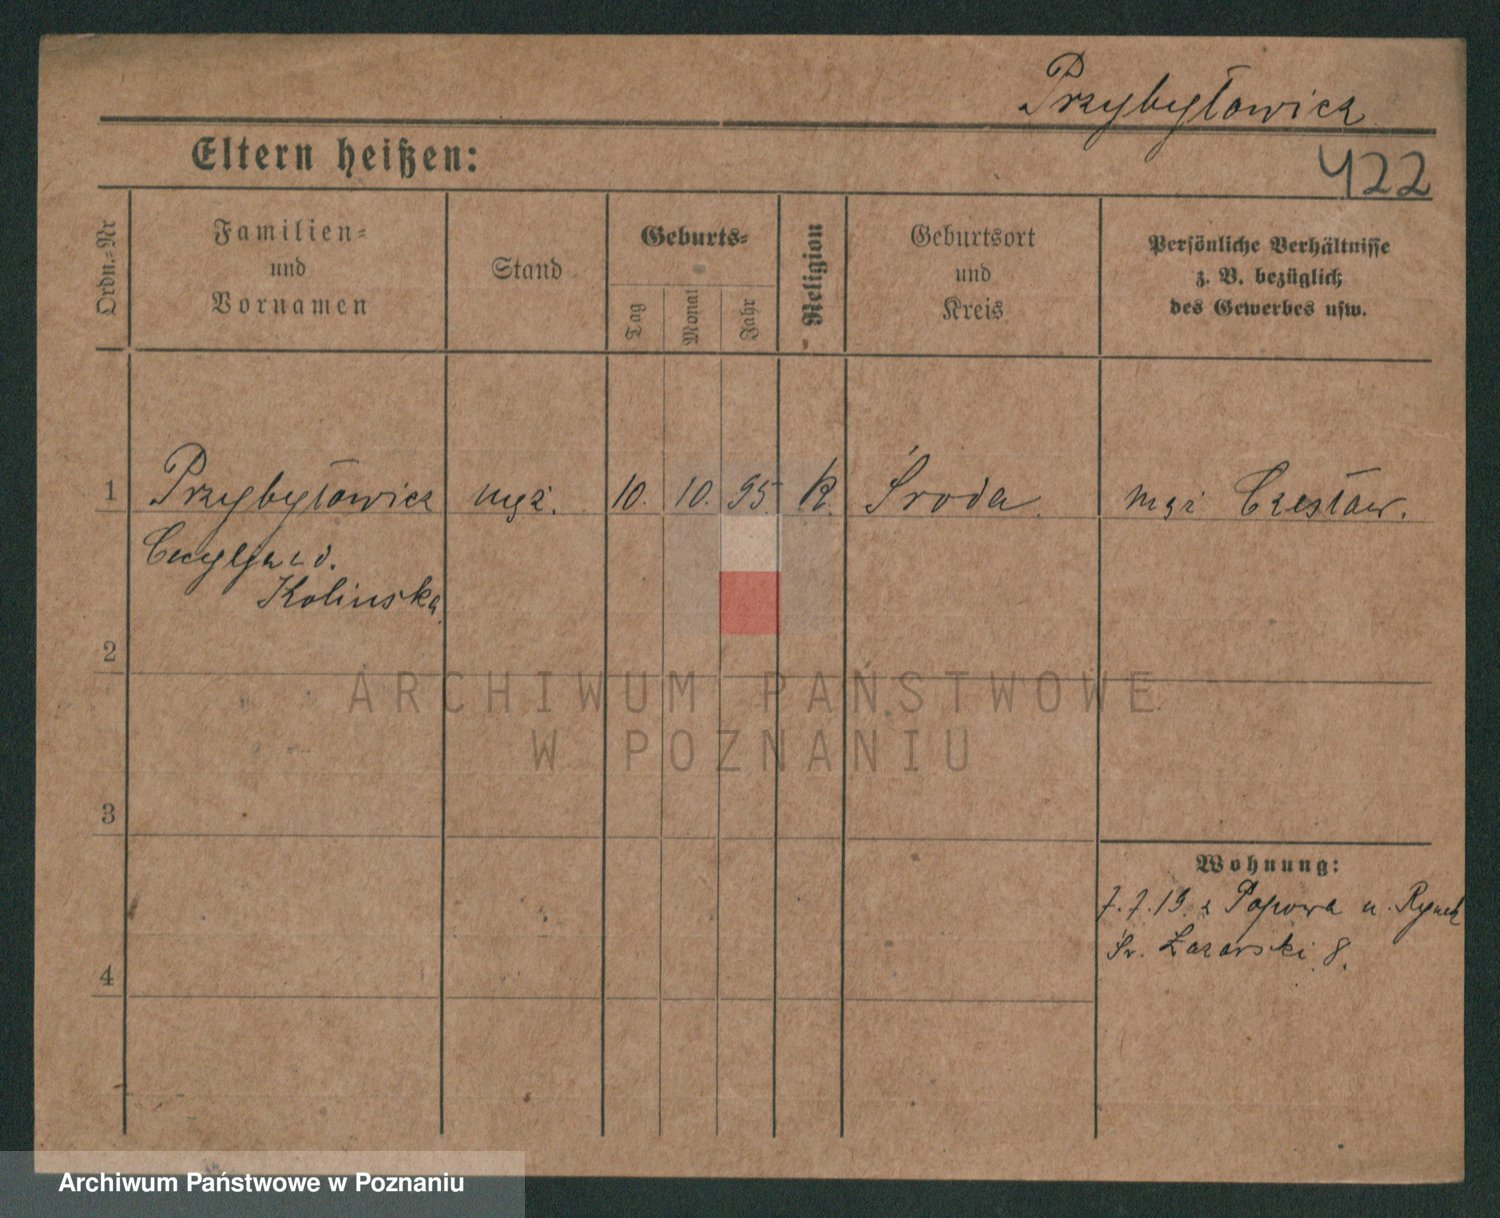 Przybyłowicz
Eltern heißen:
422
Ordn.-Nr
Familien-
und
Vornamen
Stand
Geburts-
Tag
Monat
Jahr
Religion
Geburtsort
und
Kreis
Persönliche Verhältnisse
z. B. bezüglich
des Gewerbes usw.
1 Przybyłowicz męż. 10. 10. 95 K. Środa. mąż Czesław.
Cecylja z d.
Kolinska
2
3
4
Wohnung:
7.7.19. z Popowa u. Rynek
Śr. Łazarski 8.
ARCHIWUM PAŃSTWOWE
W POZNANIU
Archiwum Państwowe w Poznaniu